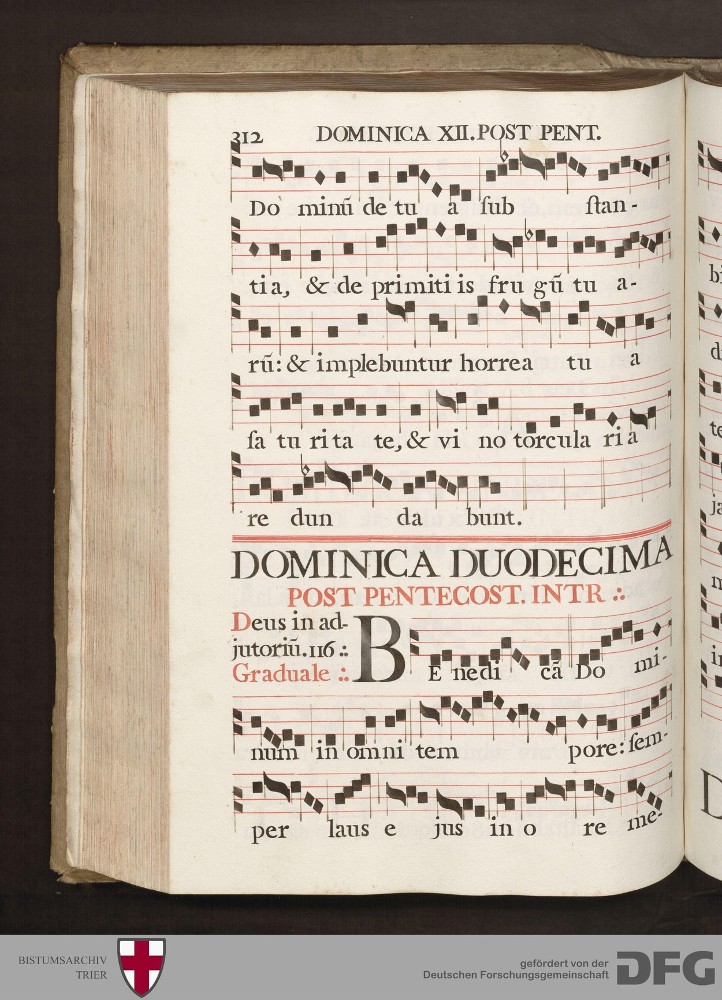 312 DOMINICA XII. POST PENT.
Do minū de tu a sub stan-
tia, & de primiti is fru gū tu a-
rū: & implebuntur horrea tu a
sa tu ri ta te, & vi no torcula ri a
re dun da bunt.
DOMINICA DUODECIMA
POST PENTECOST. INTR ∴
Deus in ad-
jutoriū. 116 :.
Graduale :.
BE nedi cā Do mi-
num in omni tem pore: sem-
per laus e jus in o re me-
BISTUMSARCHIV
TRIER
gefördert von der
Deutschen Forschungsgemeinschaft
DFG